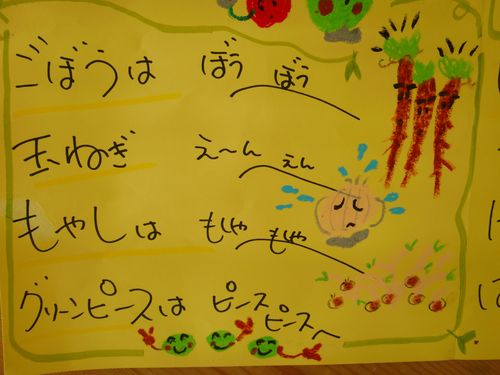 ごぼうは ぼうぼう
玉ねぎ え〜んえん
もやしは もじゃもじゃ
グリーンピースは ピースピース〜